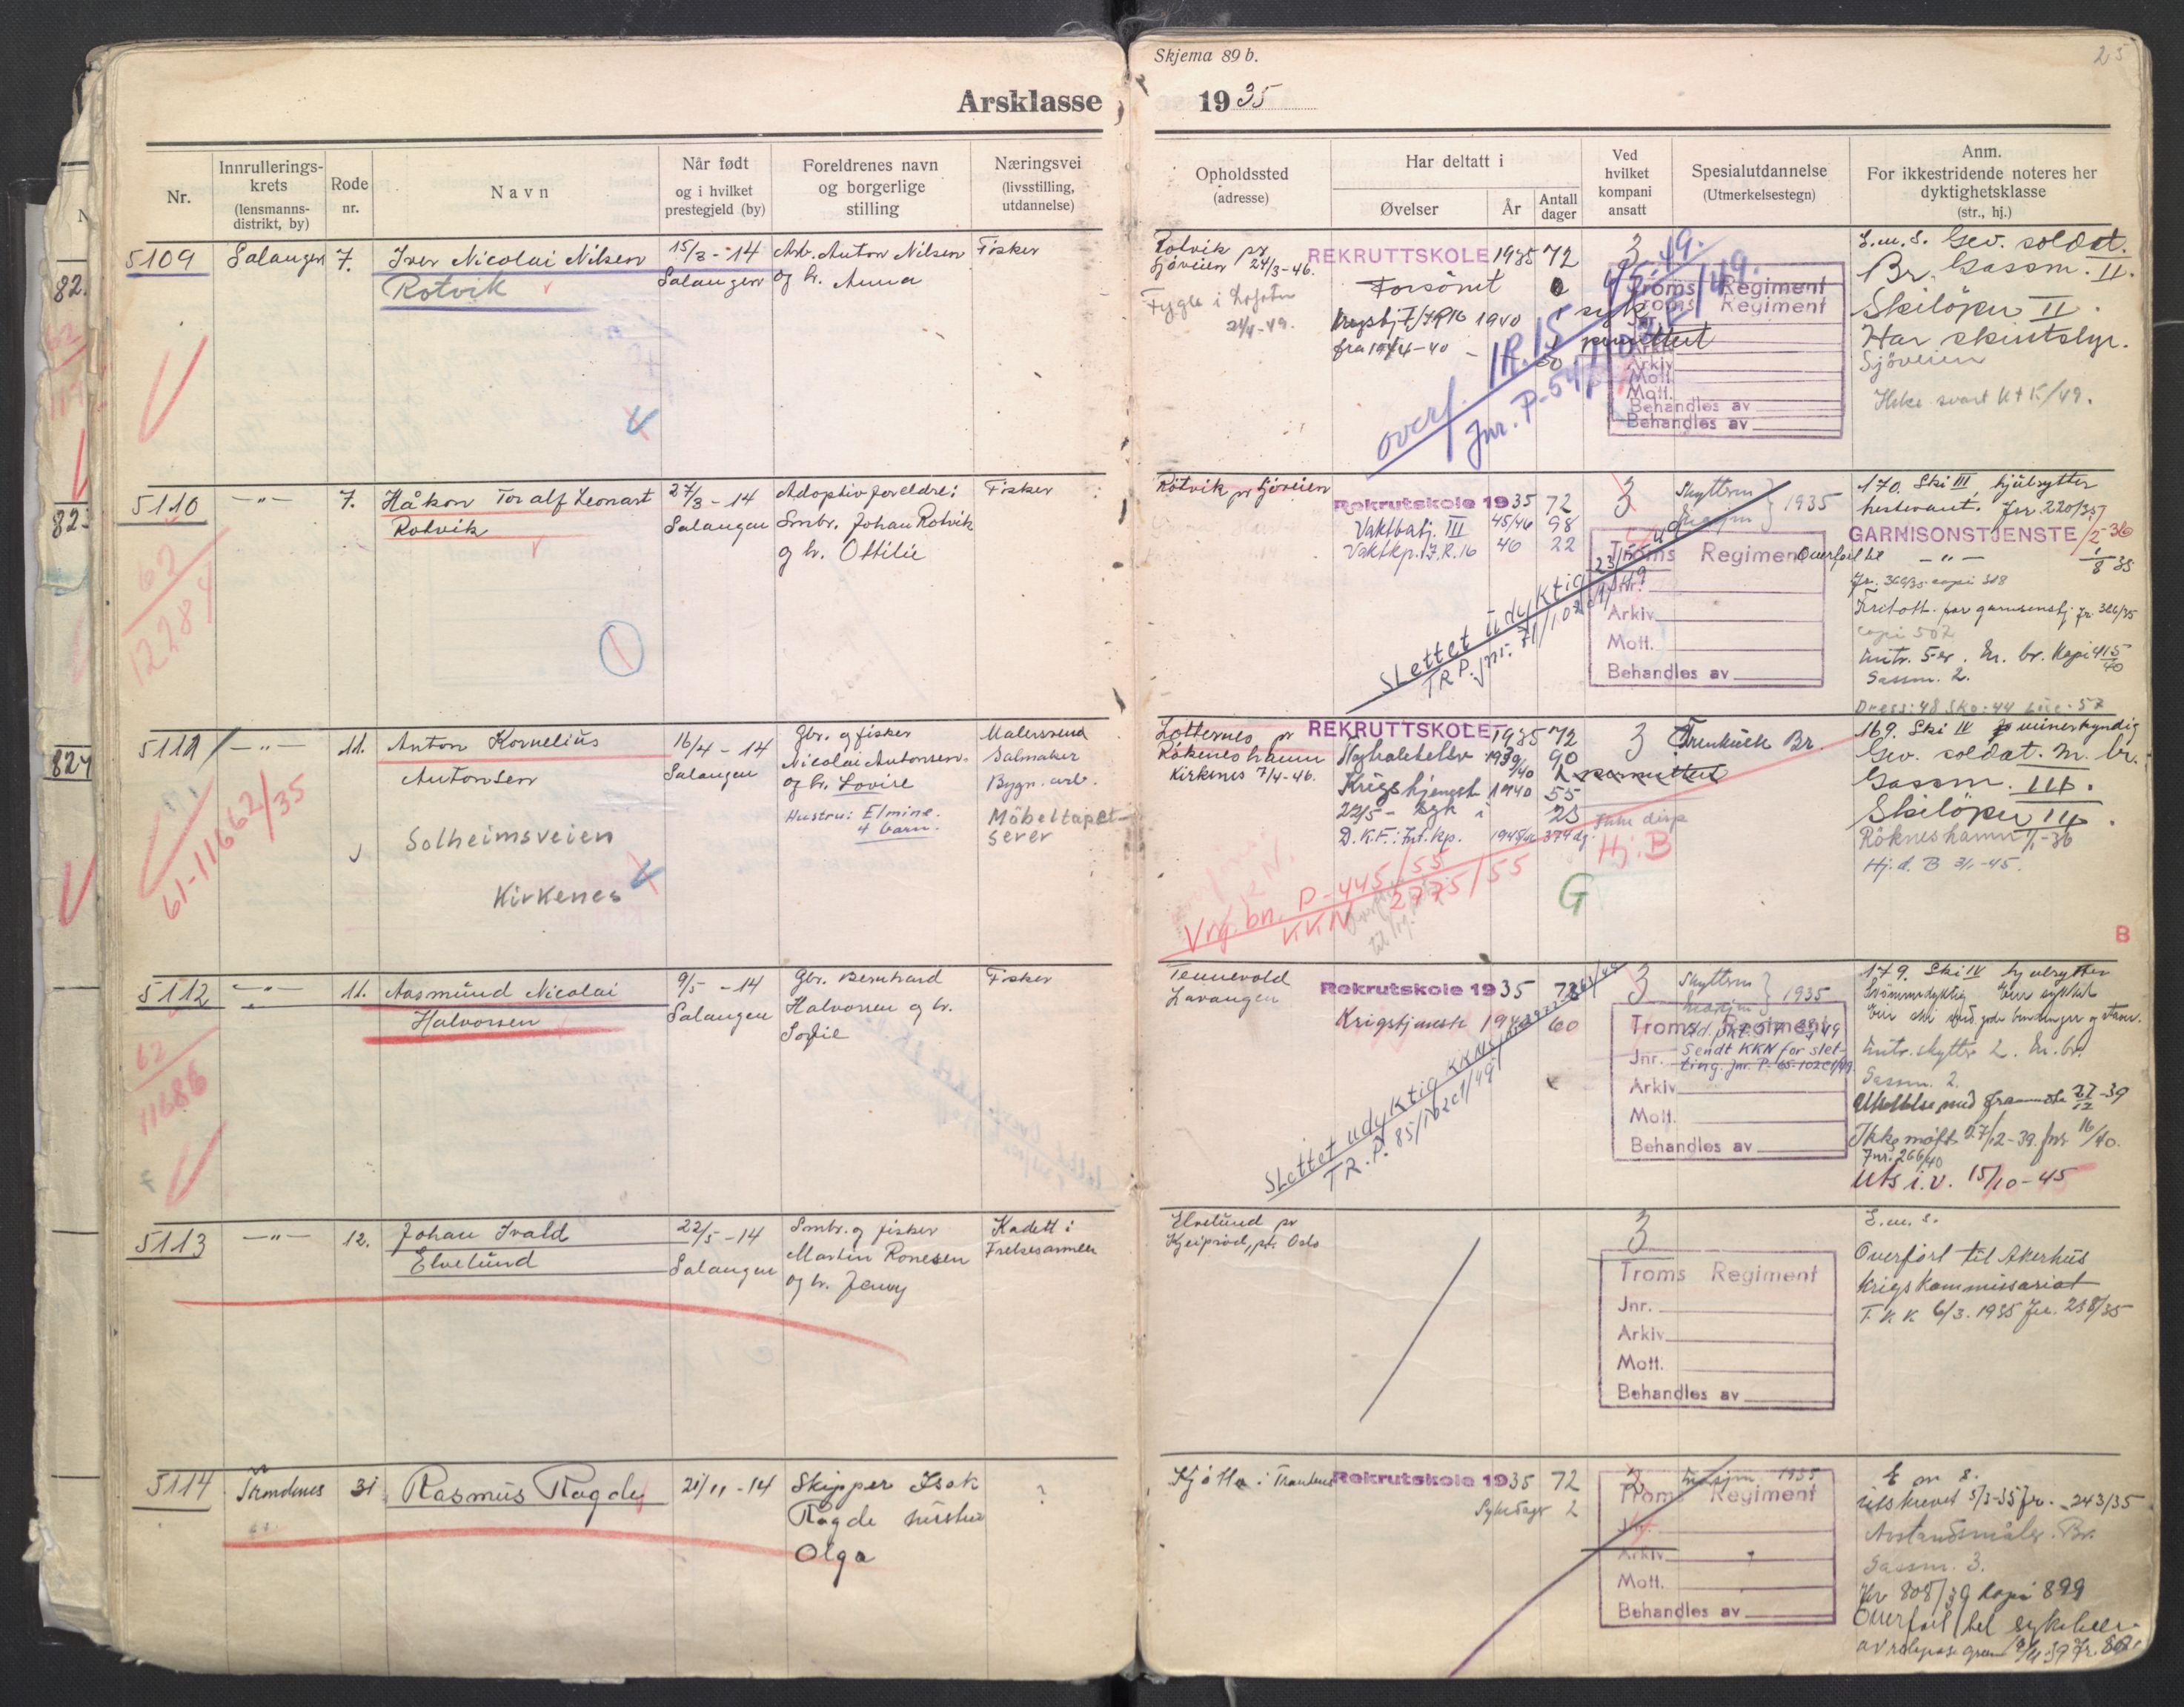 Skjema 89 b.
25
Årsklasse 1935
Nr.
Innrullerings-
krets
(lensmanns-
distrikt, by)
Rode
nr.
Navn
Når født
og i hvilket
prestegjeld (by)
Foreldrenes navn
og borgerlige
stilling
Næringsvei
(livsstilling,
utdannelse)
Opholdssted
(adresse)
Har deltatt i
Øvelser
År
Antall
dager
Ved
hvilket
kompani
ansatt
Spesialutdannelse
(Utmerkelsestegn)
Anm.
For ikkestridende noteres her
dyktighetsklasse
(str., hj.)
5109 Salangen 7. Iver Nicolai Nilsen
Rotvik
15/3-14
Salangen
Arb. Anton Nilsen
og h. Anna
Fisker
Rotvik pr
Sjøveien 24/3-46.
Fygle i Lofoten
21/4-49.
REKRUTTSKOLE 1935 72
Forsömt 0
Krigstj I/IR16 1940 1 syk
fra 10/4-40
permittert
3
overf. IR.15
Jnr. P-547
Troms Regiment
Troms Regiment
Arkiv
Mott.
Mott.
Behandles av
Behandles av
E.m.s. Gev. soldat.
Br. Gassm. II.
Skilöper II.
Har skiutstyr.
Sjöveien
Ikke svart U+K/49.
5110 —"— 7. Håkon Toralf Leonart
Rotvik
62
12284
27/3-14
Salangen
Adoptivforeldre:
Smbr. Johan Rotvik
og h. Ottilie
Fisker
Rotvik pr Sjöveien
Rekrutskole 1935 72
Vaktbatj. III 45/46 98
Vaktkp. I.R.16 46 22
3
1935
Slettet udyktig 23/5-49
TRP. jnr. 71/102c1/49
Troms Regiment
Jnr.
Arkiv
Mott.
Behandles av
170. Ski III, hjulrytter
hestevant. Jnr. 220/35
GARNISONSTJENSTE 1/2-36
Overfört til —"— 1/8 35
Jr. 366/35 copi 318
Fritatt for garnisonstj. Jr. 366/35
Copi 507
Gassm. 2.
Dress: 48 Sko: 44 Lue: 57
5111 —"— 11. Anton Kornelius
Antonsen
Solheimsveien
Kirkenes
61-11662/35
16/4-14
Salangen
Gbr. og fisker
Nicolai Antonsen
og h. Lovise
Hustru: Elmine.
4 barn.
Malersvend
Salmaker
Bygn. arb.
Möbeltapet-
serer
Lotternes pr
Rökeneshamn
Kirkenes 7/4-46.
REKRUTTSKOLE 1935 72
Nøytralitetsv 1939/40 90
Krigstjenest 1940 55
22/5 - syk i 25
D.K.F.: Int.kp. 374 dg.
permittert
3
Ikke disp
Hj. B
G
Vrg. bn. P-445/55
KKN 2775/55
169. Ski IV minerkyndig
Gev. soldat. M. br.
Gassm. III.
Skilöper III.
Röknes hamn 1/1-36
Hj.d. B 3/1-45.
B
5112 —"— 11. Aasmund Nicolai
Halvorsen
62
11686
9/5-14
Salangen
Gbr. Bernhard
Halvorsen og h.
Sofie
Fisker
Tennevold
Lavangen
Rekrutskole 1935 72
Krigstjenest 1940 60
3
1935
Slettet udyktig KKN
TR. P. 85/102c1/49
Troms Regiment
Jnr. Sendt KKN for slet-
ting. Jnr. P. 65-102c1/49
Arkiv
Mott.
Behandles av
179. Ski IV hjulrytter
Svömmedyktig Eier sykkel
Eier ski med gode bindinger og staver.
Gassm. 2.
Utsettelse med frammöte 27/12-39
Ikke möft 27/12-39. jnr 16/40.
Jnr. 266/40
Uts i.v. 15/10-45
5113 —"— 12. Johan Ivald
Elvelund
22/5-14
Salangen
Smbr. og fisker
Martin Ronesen
og h. Jenny
Kadett i
Frelsesarmeen
Elvelund pr
Oslo
3
Troms Regiment
Jnr.
Arkiv
Mott.
Behandles av
E.m.s.
Overfört til Akerhus
Krigskommissariat
T K K 6/3. 1935 Jnr. 238/35
5114 Trondenes 31 Rasmus Ragde
21/11-14
Skipper Isak
Ragde hustru
Olga
?
Kjøtta i Trondenes
Rekrutskole 1935 72
Sykedager 2
2
1935
Troms Regiment
Jnr.
Arkiv
Mott.
Behandles av
E m s.
Utskrevet 5/3-35 Jr. 243/35
Avstandsmåler. Br.
Gassm. 3.
Jnr 808/39 kopi 899
Overfört til